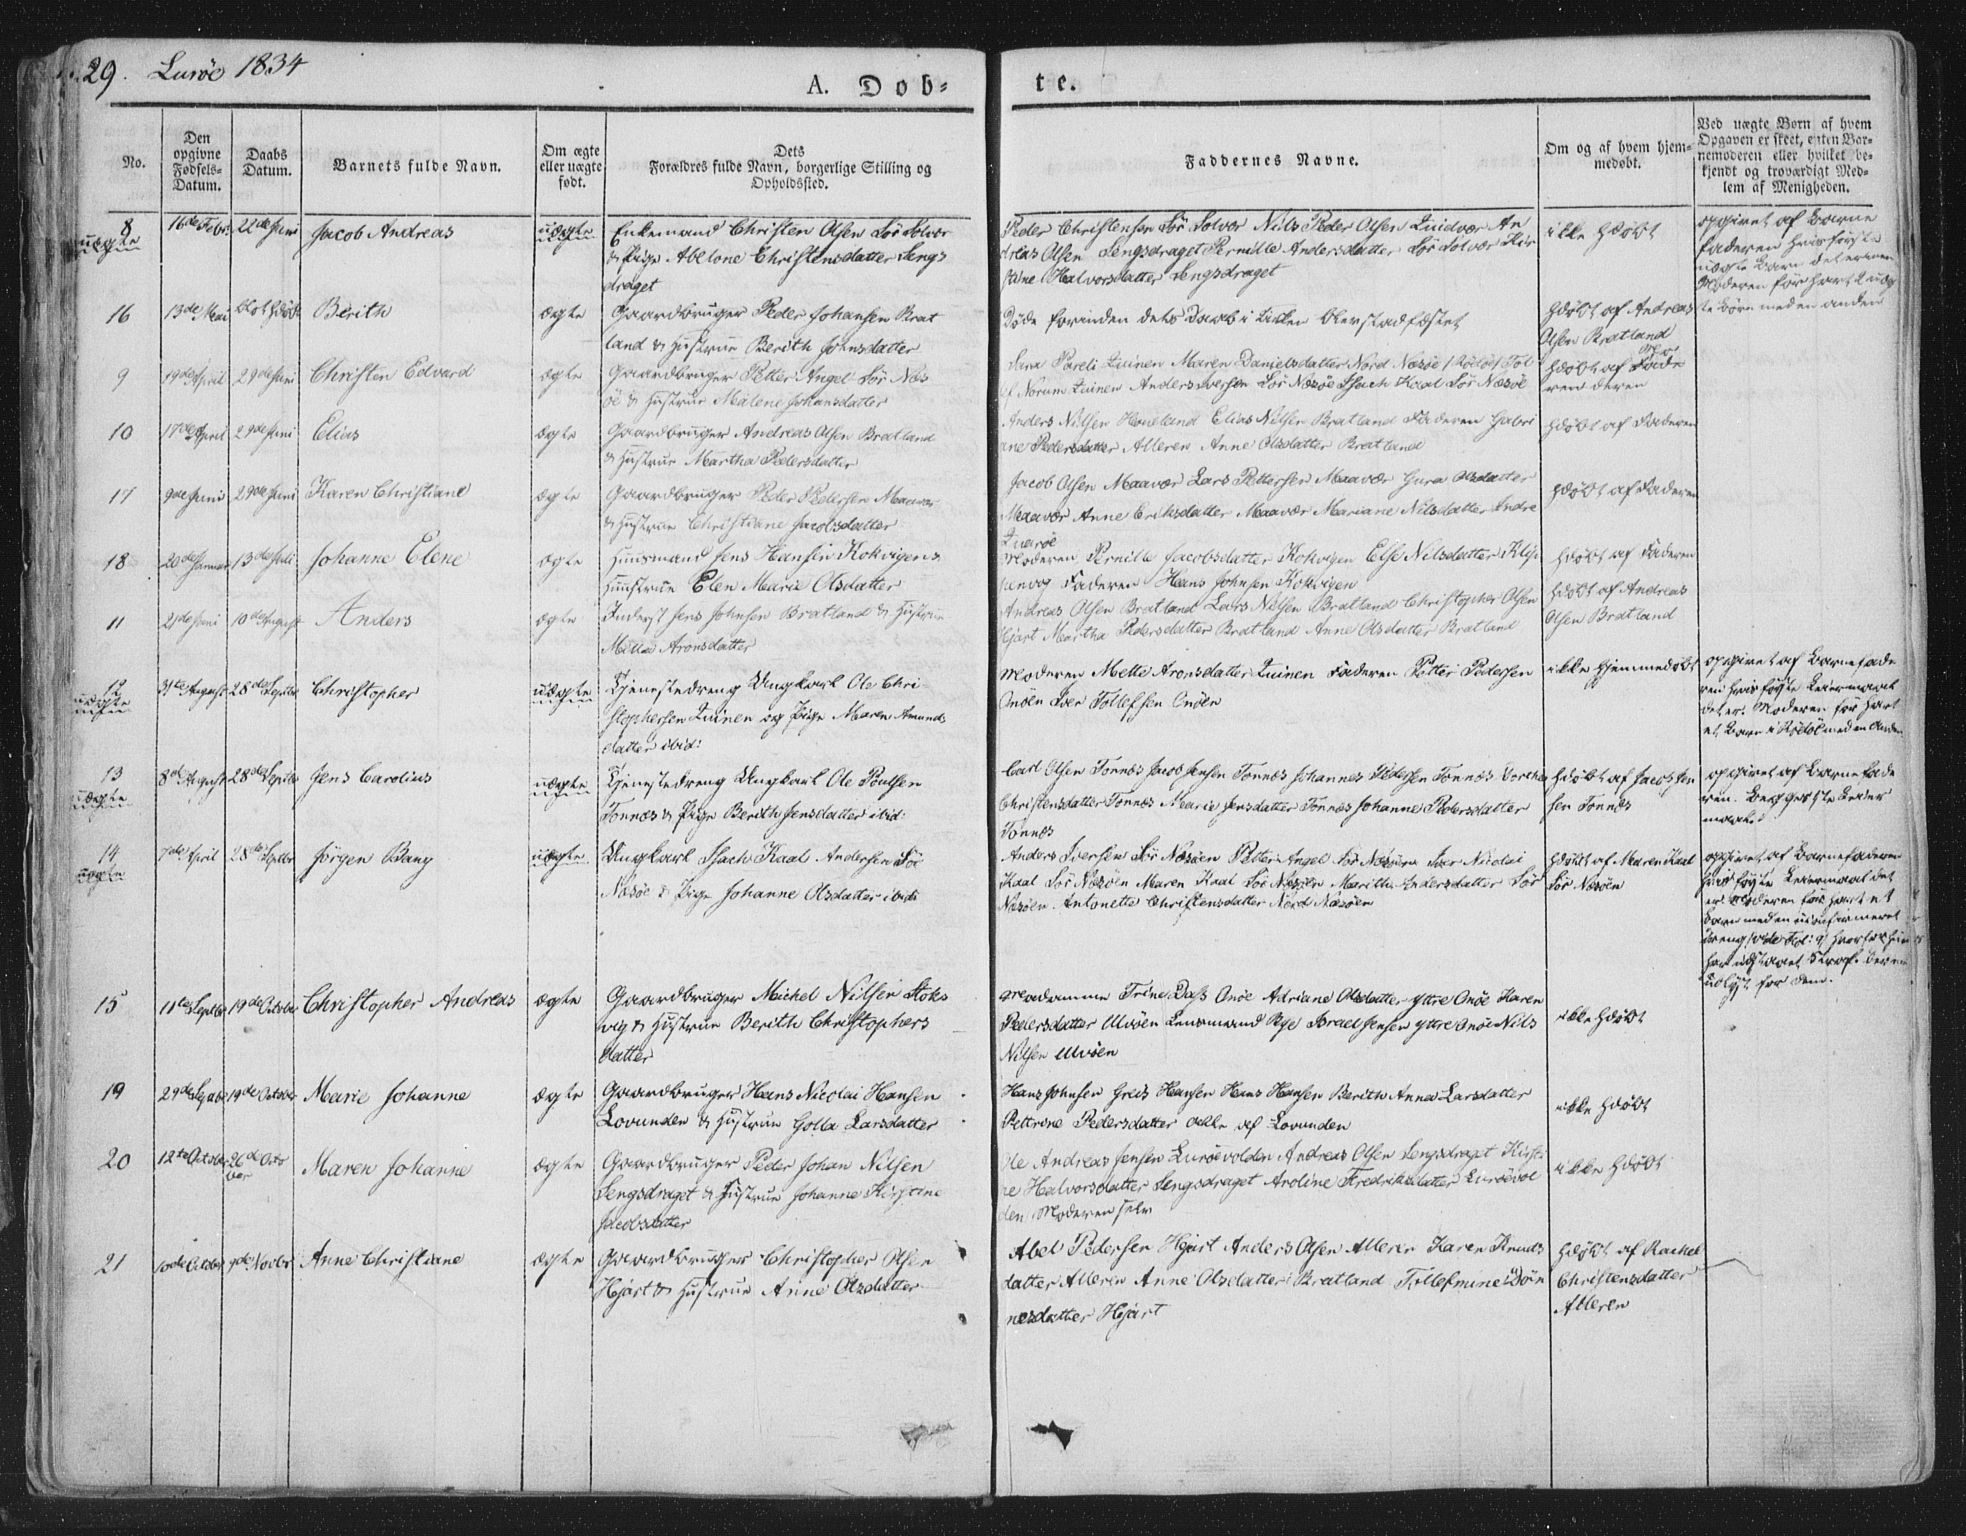 29. Lurøe 1834
A. Dob-
te.
No.
Den opgivne Fødsels-Datum.
Daabs Datum.
Barnets fulde Navn.
Om ægte eller uægte født.
Dets Forældres fulde Navn, borgerlige Stilling og Opholdssted.
Faddernes Navne.
Om og af hvem hjemmedøbt.
Ved uægte Børn af hvem Opgaven er skeet, enten Barnemoderen eller hvilket bekjendt og troværdigt Medlem af Menigheden.
8 uægte
16de Febr.
22de Juni
Jacob Andreas
uægte
Enkemand Christen Olsen Sør Solvær
& Pige Abelone Christensdatter Lengs
draget
Peder Christensen Sør Solvær Nils Peder Olsen Quidvær An
dreas Olsen Lengsdraget Pernille Andersdatter Sør Solvær Kir
stine Halvorsdatter Lengsdraget
ikke hdøbt
opgivet af Barne
faderen hvis første
uægte Barn det er men
Moderen før havt 2 uæg
te Børn med en anden
16
13de Mai
blot hdøbt
Berith
ægte
Gaardbruger Peder Johansen Brat
land & Hustrue Berith Johnsdatter
Døde forinden dets Daab i Kirken blev stadfæstet
hdøbt af Andreas
Olsen Bratland
9
19de April
29de Juni
Christen Edvard
ægte
Gaardbruger Petter Angel Sør Næs
øe & Hustrue Malene Johansdatter
Maren Danielsdatter Nord Næsøe
Anders Iversen Sør Næsøe Isach Kaal Sør Næsøe
hdøbt af
10
17de April
29de Juni
Elias
ægte
Gaardbruger Andreas Olsen Bratland
& Hustrue Martha Pedersdatter
Anders Nilsen Haueland Elias Nilsen Bratland Faderen Gabri
ane Pedersdatter Alleren Anne Olsdatter Bratland
hdøbt af Faderen
17
9de Juni
29de Juni
Karen Christiane
ægte
Gaardbruger Peder Pedersen Maavær
& Hustrue Christiane Jacobsdatter
Jacob Olsen Maavær Lars Pettersen Maavær Gura Olsdatter
Maavær Anne Eriksdatter Maavær Mariane Nilsdatter Indre
Quarøe
hdøbt af Faderen
18
20de Januar
13de Juli
Johanne Elene
ægte
Huusmand Jens Hansen Kokvigen &
Huustrue Elen Marie Olsdatter
Moderen Pernille Jacobsdatter Kokvigen Else Nilsdatter Klip
penvog Faderen Hans Johnsen Kokvigen
hdøbt af Faderen
11
21de Juni
10de August
Anders
ægte
Inderst Jens Johnsen Bratland & Hustrue
Mette Aronsdatter
Andreas Olsen Bratland Lars Nilsen Bratland Christopher Olsen
Hjart Martha Pedersdatter Bratland Anne Olsdatter Bratland
hdøbt af Andreas
Olsen Bratland
12 uægte
31te August
28de Septbr
Christopher
uægte
Tjenestedreng Ungkarl Ole Chri
stophersen Quinen og Pige Maren Amunds
datter ibid:
Moderen Mette Aronsdatter Quinen Faderen Petter Pedersen
Onøen Iver Tollefsen Onøen
ikke hjemmedøbt
opgivet af Barnefade
ren hvis første Leiermaal
det er. Moderen før havt
et Barn i Rødøe med en Anden
13 uægte
8de August
28de Septbr
Jens Carolius
uægte
Tjenestedreng Ungkarl Ole Poulsen
Tonnæs & Pige Berith Jensdatter ibid:
Carl Olsen Tonnæs Jacob Jensen Tonnæs Johannes Pedersen Tonnæs Dorthea
Christensdatter Tonnæs Marie Jensdatter Tonnæs Johanne Pedersdatter
Tonnæs
hdøbt af Jacob Jen
sen Tonnæs
opgivet af Barnefade
ren. Begges 1ste Leier
maal
14 uægte
7de April
28de Septbr
Jørgen Bang
uægte
Ungkarl Isach Kaal Andersen Sør
Næsøe & Pige Johanne Olsdatter ibid:
Anders Iversen Sør Næsøen Petter Angel Sør Næsøen Iver Nicolai
Kaal Sør Næsøen Maren Kaal Sør Næsøen Maritha Andersdatter Sør
Næsøen Antonette Christensdatter Nord Næsøen
hdøbt af Maren Kaal
Sør Næsøen
opgivet af Barnefaderen
hvis første Leiermaal det
er. Moderen før havt et
Barn med en uconfirmeret
Dreng
har udstaaet Straf
15
11te Septbr
19de October
Christopher Andreas
ægte
Gaardbruger Michel Nilsen Stoks
vig & Hustrue Berith Christophers
datter
Madamme Trine Dass Onøe Adriane Olsdatter Yttre Onøe Karen
Pedersdatter Ulvøen Lensmand Bye Israel Jensen Yttre Onøe Nils
Nilsen Ulvøen
ikke hdøbt
19
29de Septbr
19de October
Marie Johanne
ægte
Gaardbruger Hans Nicolai Hansen
Lovunden & Hustrue Golla Larsdatter
Hans Johnsen Greis Hansen Hans Hansen Berith Anna Larsdatter
Pettrine Pedersdatter alle af Lovunden
ikke hdøbt
20
12te October
26de Octo
ber
Maren Johanne
ægte
Gaardbruger Peder Johan Nilsen
Lengsdraget & Hustrue Johanne Kirstine
Jacobsdatter
Ole Andreas Jensen Lurøevolden Andreas Olsen Lengsdraget Kirsti
ne Halvorsdatter Lengsdraget Aroline Fredriksdatter Lurøevol
den Moderen selv
ikke hdøbt
21
10de October
9de Novbr
Anne Christiane
ægte
Gaardbruger Christopher Olsen
Hjart & Hustrue Anne Olsdatter
Abel Pedersen Hjart Anders Olsen Alleren Karen Knuds
datter Alleren Anne Olsdatter Bratland Tollefmine Døn
nesdatter Hjart
hdøbt af Rachel
Christensdatter
Alleren